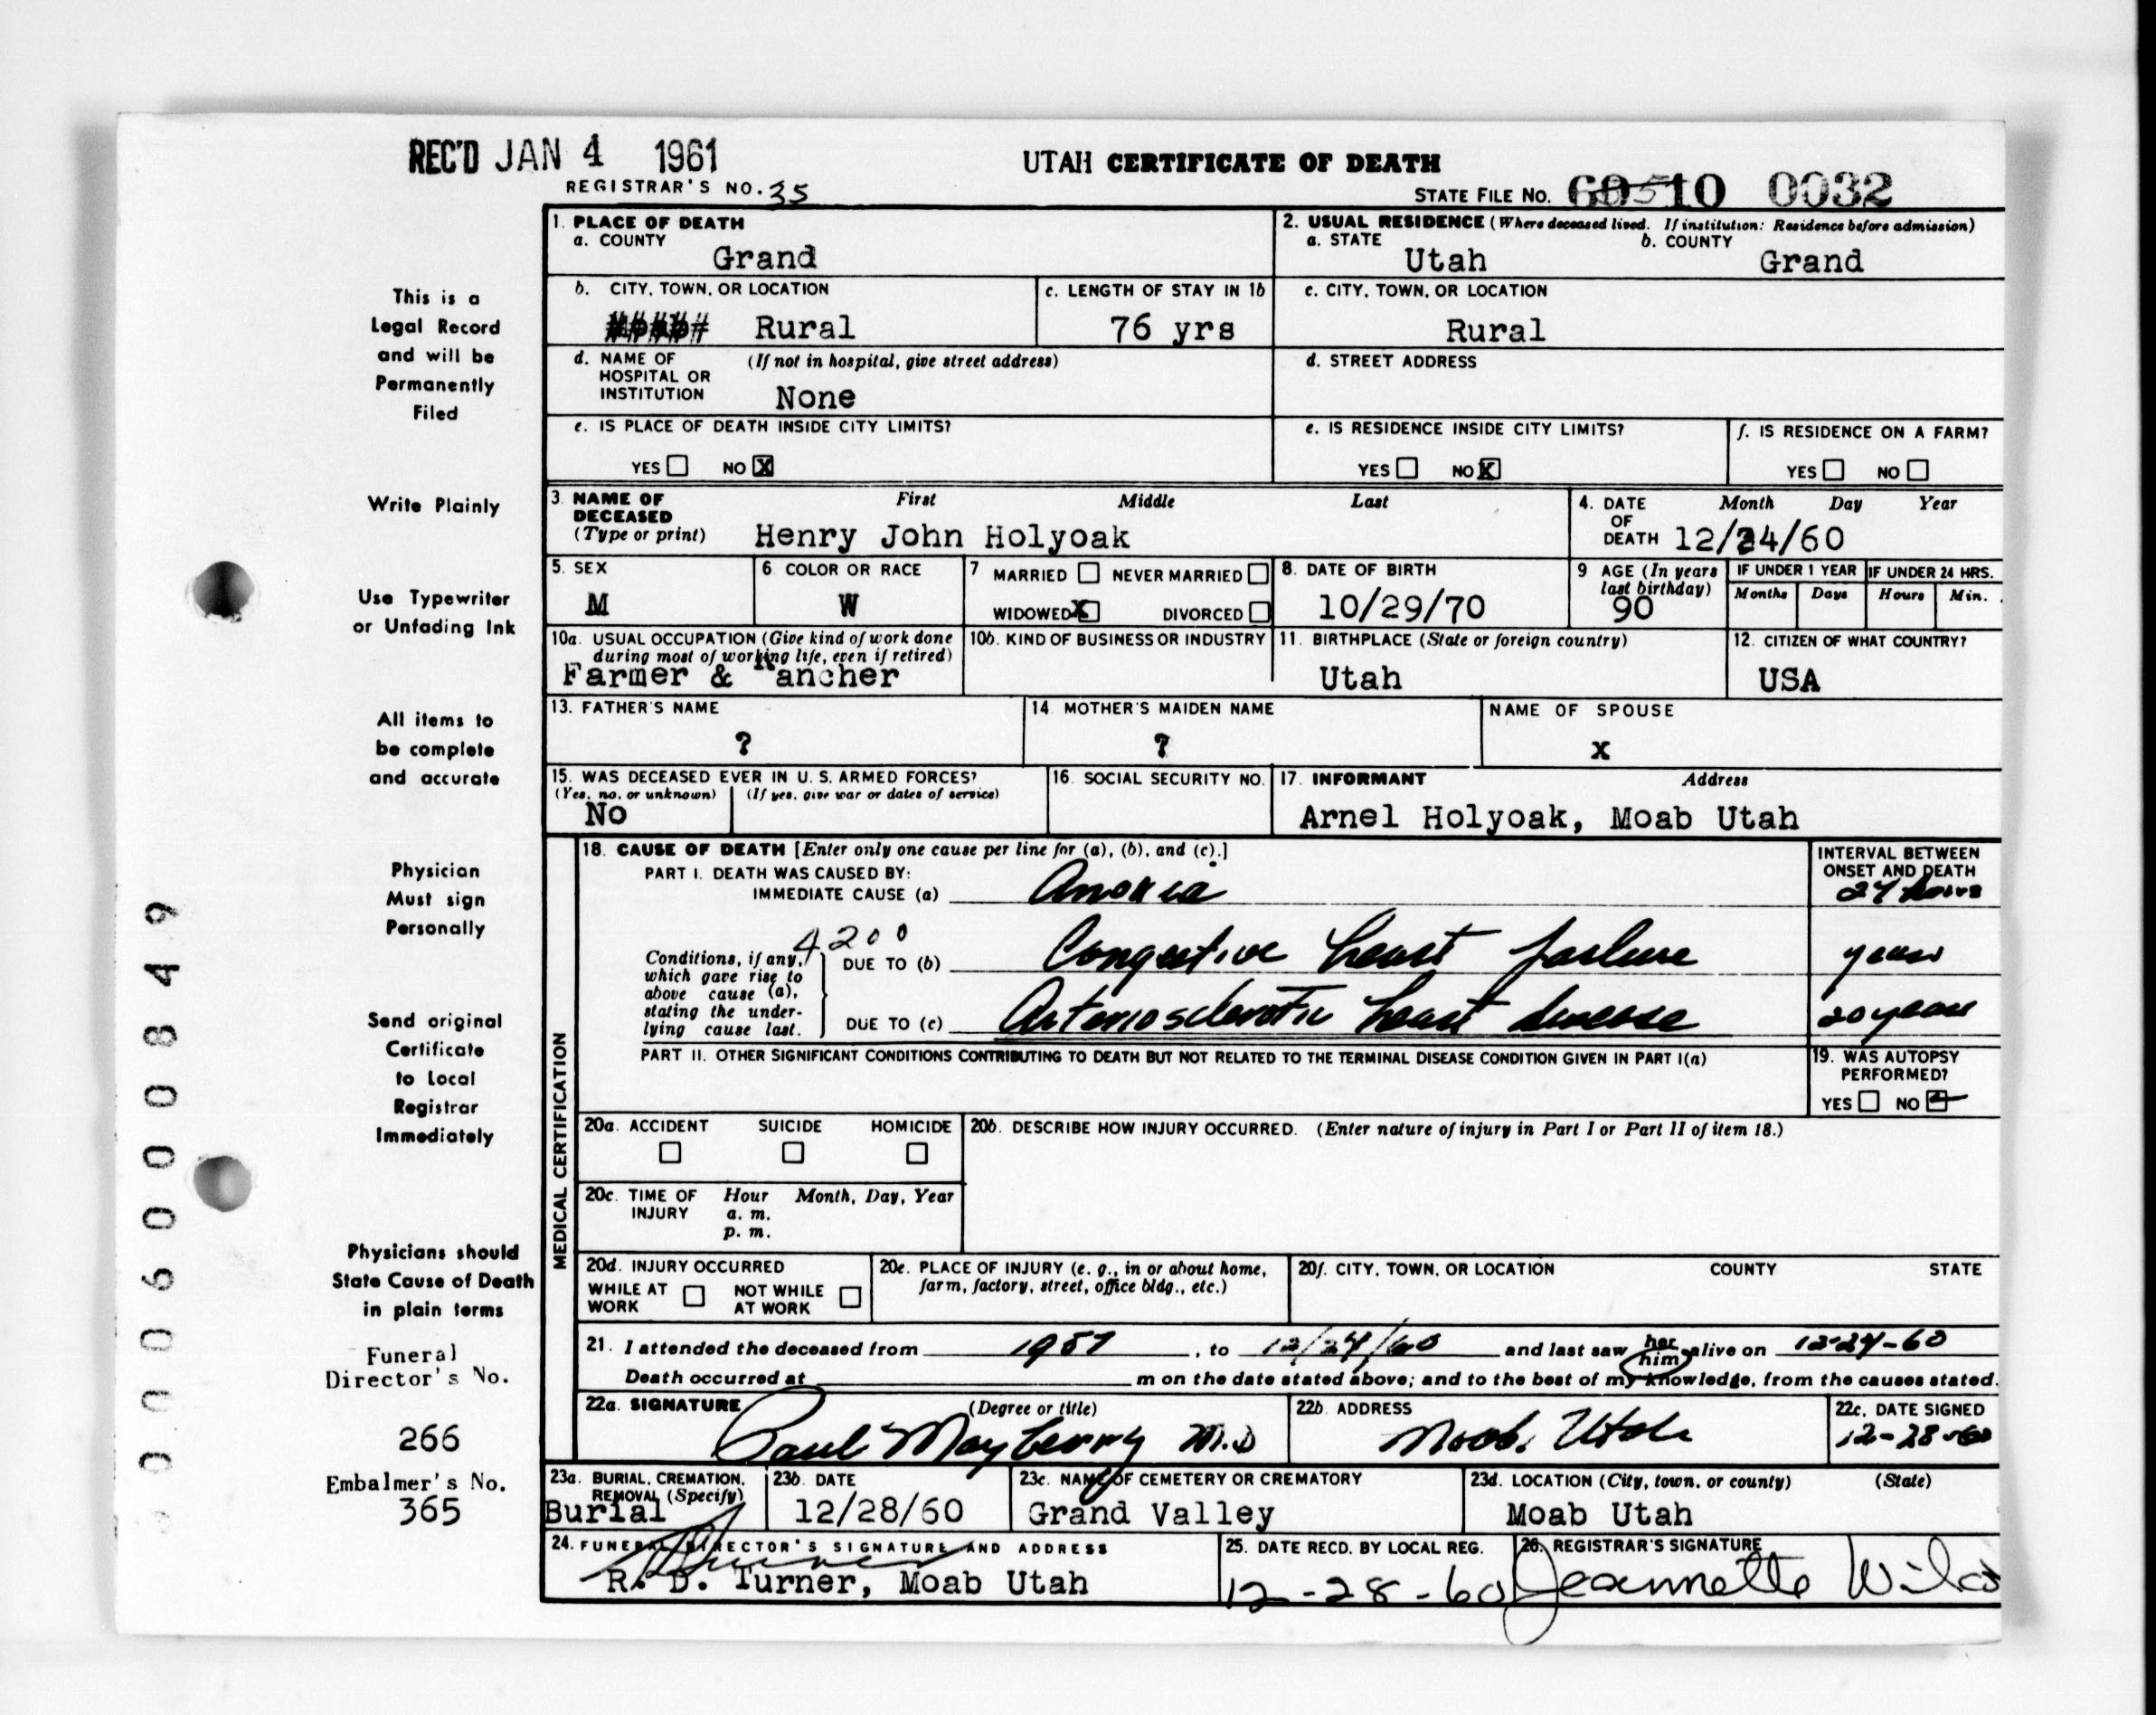 REC'D JAN 4 1961
UTAH CERTIFICATE OF DEATH
REGISTRAR'S NO. 35
STATE FILE NO. 60 510 0032
1. PLACE OF DEATH
a. COUNTY
Grand
2. USUAL RESIDENCE (Where deceased lived. If institution: Residence before admission)
a. STATE b. COUNTY
Utah Grand
b. CITY, TOWN, OR LOCATION
Rural
c. LENGTH OF STAY IN 1b
76 yrs
c. CITY, TOWN, OR LOCATION
Rural
d. NAME OF (If not in hospital, give street address)
HOSPITAL OR
INSTITUTION None
d. STREET ADDRESS
e. IS PLACE OF DEATH INSIDE CITY LIMITS?
YES NO X
e. IS RESIDENCE INSIDE CITY LIMITS?
YES NO X
f. IS RESIDENCE ON A FARM?
YES NO
3. NAME OF DECEASED
(Type or print)
First Middle Last
Henry John Holyoak
4. DATE OF DEATH
Month Day Year
12/24/60
5. SEX
M
6. COLOR OR RACE
W
7 MARRIED NEVER MARRIED
WIDOWED X DIVORCED
8. DATE OF BIRTH
10/29/70
9 AGE (In years
last birthday)
90
IF UNDER 1 YEAR
Months Days
IF UNDER 24 HRS.
Hours Min.
10a. USUAL OCCUPATION (Give kind of work done
during most of working life, even if retired)
Farmer & Rancher
10b. KIND OF BUSINESS OR INDUSTRY
11. BIRTHPLACE (State or foreign country)
Utah
12. CITIZEN OF WHAT COUNTRY?
USA
13. FATHER'S NAME
?
14. MOTHER'S MAIDEN NAME
?
NAME OF SPOUSE
x
15. WAS DECEASED EVER IN U. S. ARMED FORCES?
(Yes, no, or unknown) (If yes, give war or dates of service)
No
16. SOCIAL SECURITY NO.
17. INFORMANT Address
Arnel Holyoak, Moab Utah
MEDICAL CERTIFICATION
18. CAUSE OF DEATH [Enter only one cause per line for (a), (b), and (c).]
PART I. DEATH WAS CAUSED BY:
IMMEDIATE CAUSE (a) Anoxia
INTERVAL BETWEEN
ONSET AND DEATH
24 hours
4200
Conditions, if any,
which gave rise to
above cause (a),
stating the under-
lying cause last.
DUE TO (b) Congestive heart failure years
DUE TO (c) Arteriosclerotic heart disease 20 years
PART II. OTHER SIGNIFICANT CONDITIONS CONTRIBUTING TO DEATH BUT NOT RELATED TO THE TERMINAL DISEASE CONDITION GIVEN IN PART I(a)
19. WAS AUTOPSY
PERFORMED?
YES NO
20a. ACCIDENT SUICIDE HOMICIDE
20b. DESCRIBE HOW INJURY OCCURRED. (Enter nature of injury in Part I or Part II of item 18.)
20c. TIME OF INJURY
Hour Month, Day, Year
a. m.
p. m.
20d. INJURY OCCURRED
WHILE AT WORK NOT WHILE AT WORK
20e. PLACE OF INJURY (e. g., in or about home,
farm, factory, street, office bldg., etc.)
20f. CITY, TOWN, OR LOCATION COUNTY STATE
21. I attended the deceased from 1957, to 12/24/60 and last saw her him alive on 12-24-60
Death occurred at m on the date stated above; and to the best of my knowledge, from the causes stated.
22a. SIGNATURE (Degree or title)
Paul Mayberry M.D
22b. ADDRESS
Moab, Utah
22c. DATE SIGNED
12-28-60
23a. BURIAL, CREMATION,
REMOVAL (Specify)
Burial
23b. DATE
12/28/60
23c. NAME OF CEMETERY OR CREMATORY
Grand Valley
23d. LOCATION (City, town, or county) (State)
Moab Utah
24. FUNERAL DIRECTOR'S SIGNATURE AND ADDRESS
R. D. Turner, Moab Utah
25. DATE RECD. BY LOCAL REG.
12-28-60
26. REGISTRAR'S SIGNATURE
Jeannette
This is a
Legal Record
and will be
Permanently
Filed
Write Plainly
Use Typewriter
or Unfading Ink
All items to
be complete
and accurate
Physician
Must sign
Personally
Send original
Certificate
to Local
Registrar
Immediately
Physicians should
State Cause of Death
in plain terms
Funeral
Director's No.
266
Embalmer's No.
365
0006000849